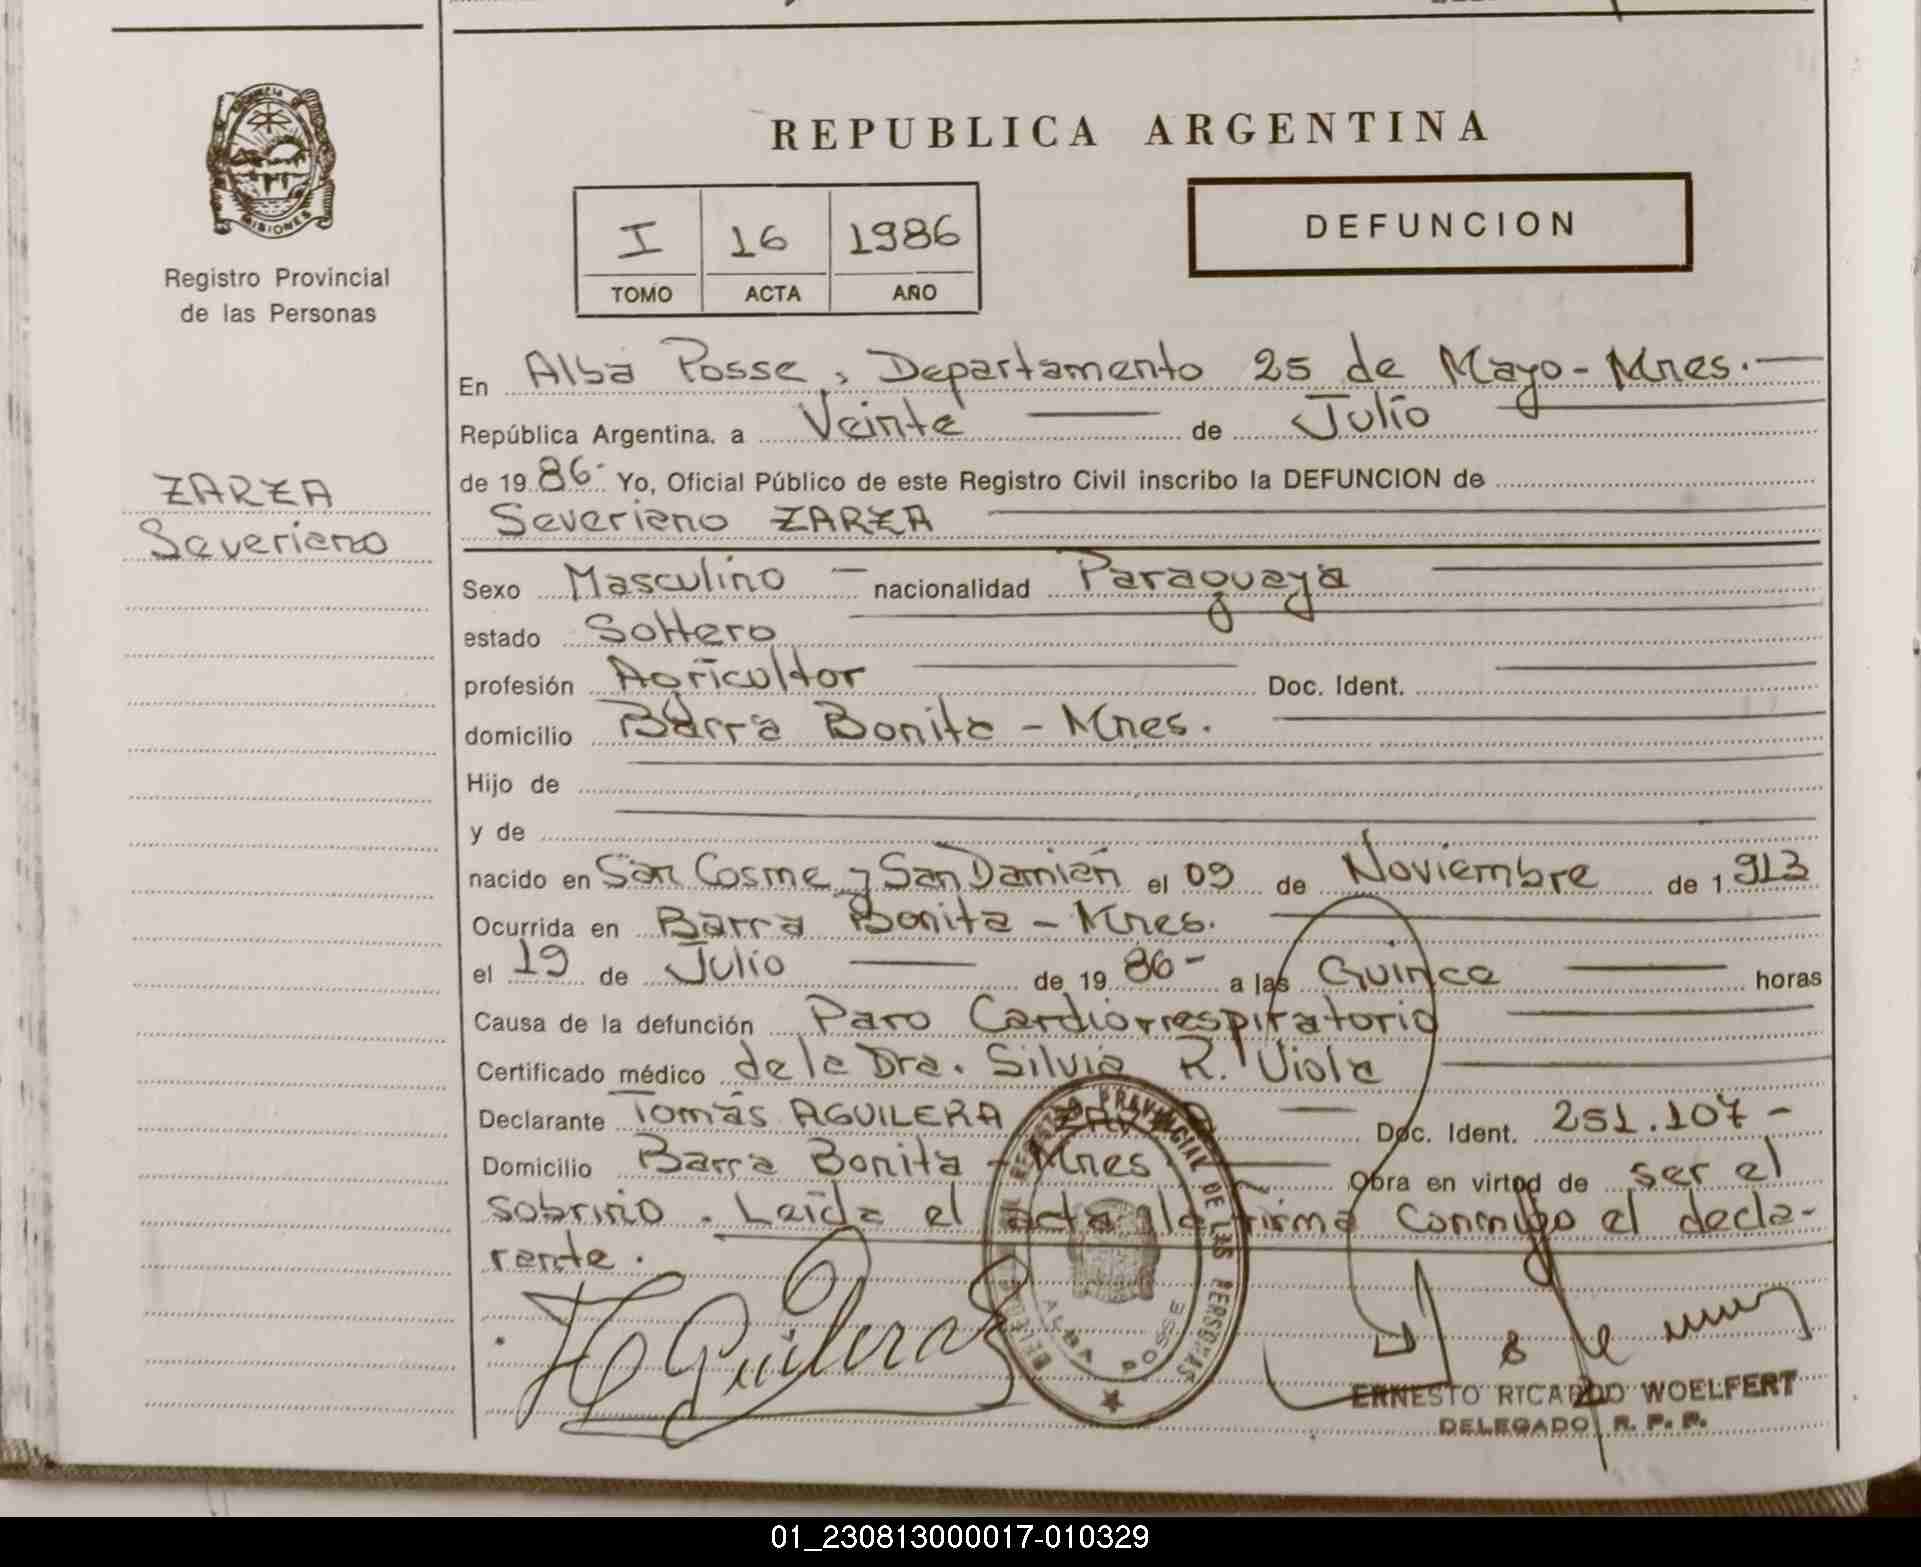 PROVINCIA
MISIONES
Registro Provincial
de las Personas
ZARZA
Severiano
REPUBLICA ARGENTINA
I 16 1986
TOMO ACTA AÑO
DEFUNCION
En Alba Posse, Departamento 25 de Mayo - Mnes.-
República Argentina, a Veinte de Julio
de 1986- Yo, Oficial Público de este Registro Civil inscribo la DEFUNCION de
Severiano ZARZA
Sexo Masculino - nacionalidad Paraguaya
estado Soltero
profesión Agricultor Doc. Ident.
domicilio Barra Bonita - Mnes.
Hijo de
y de
nacido en San Cosme y San Damián el 09 de Noviembre de 1913
Ocurrida en Barra Bonita - Mnes.
el 19 de Julio de 1986- a las Quince horas
Causa de la defunción Paro Cardiorrespiratorio
Certificado médico de la Dra. Silvia R. Viola
Declarante Tomás AGUILERA ZARZA Doc. Ident. 251.107-
Domicilio Barra Bonita - Mnes. Obra en virtud de ser el
sobrino. Leída el acta la firma conmigo el decla-
rante.
REGISTRO PROVINCIAL DE LAS PERSONAS
ALBA POSSE
ERNESTO RICARDO WOELFERT
DELEGADO R. P. P.
01_230813000017-010329